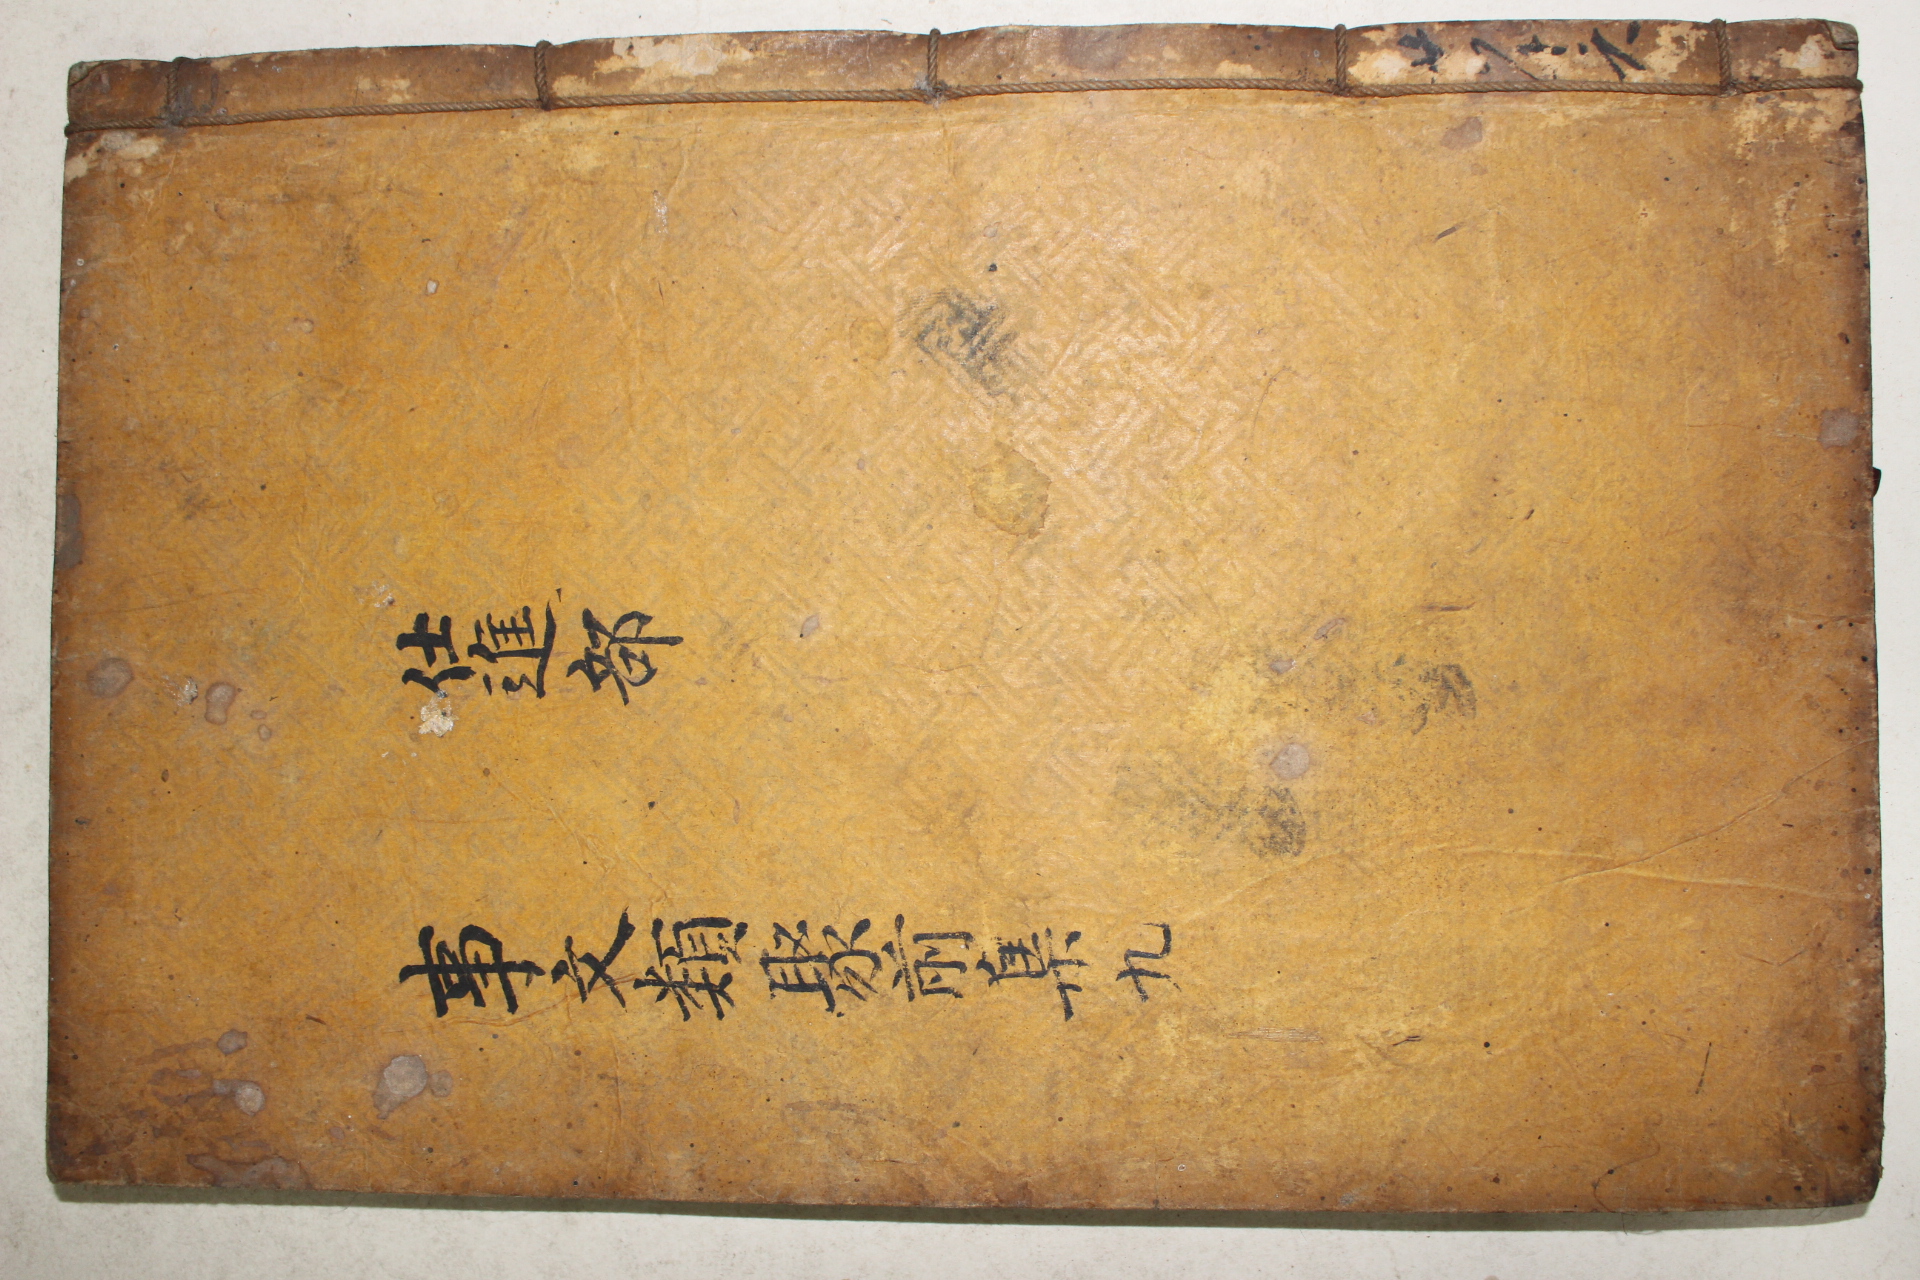 仕進部
事文類聚前集九